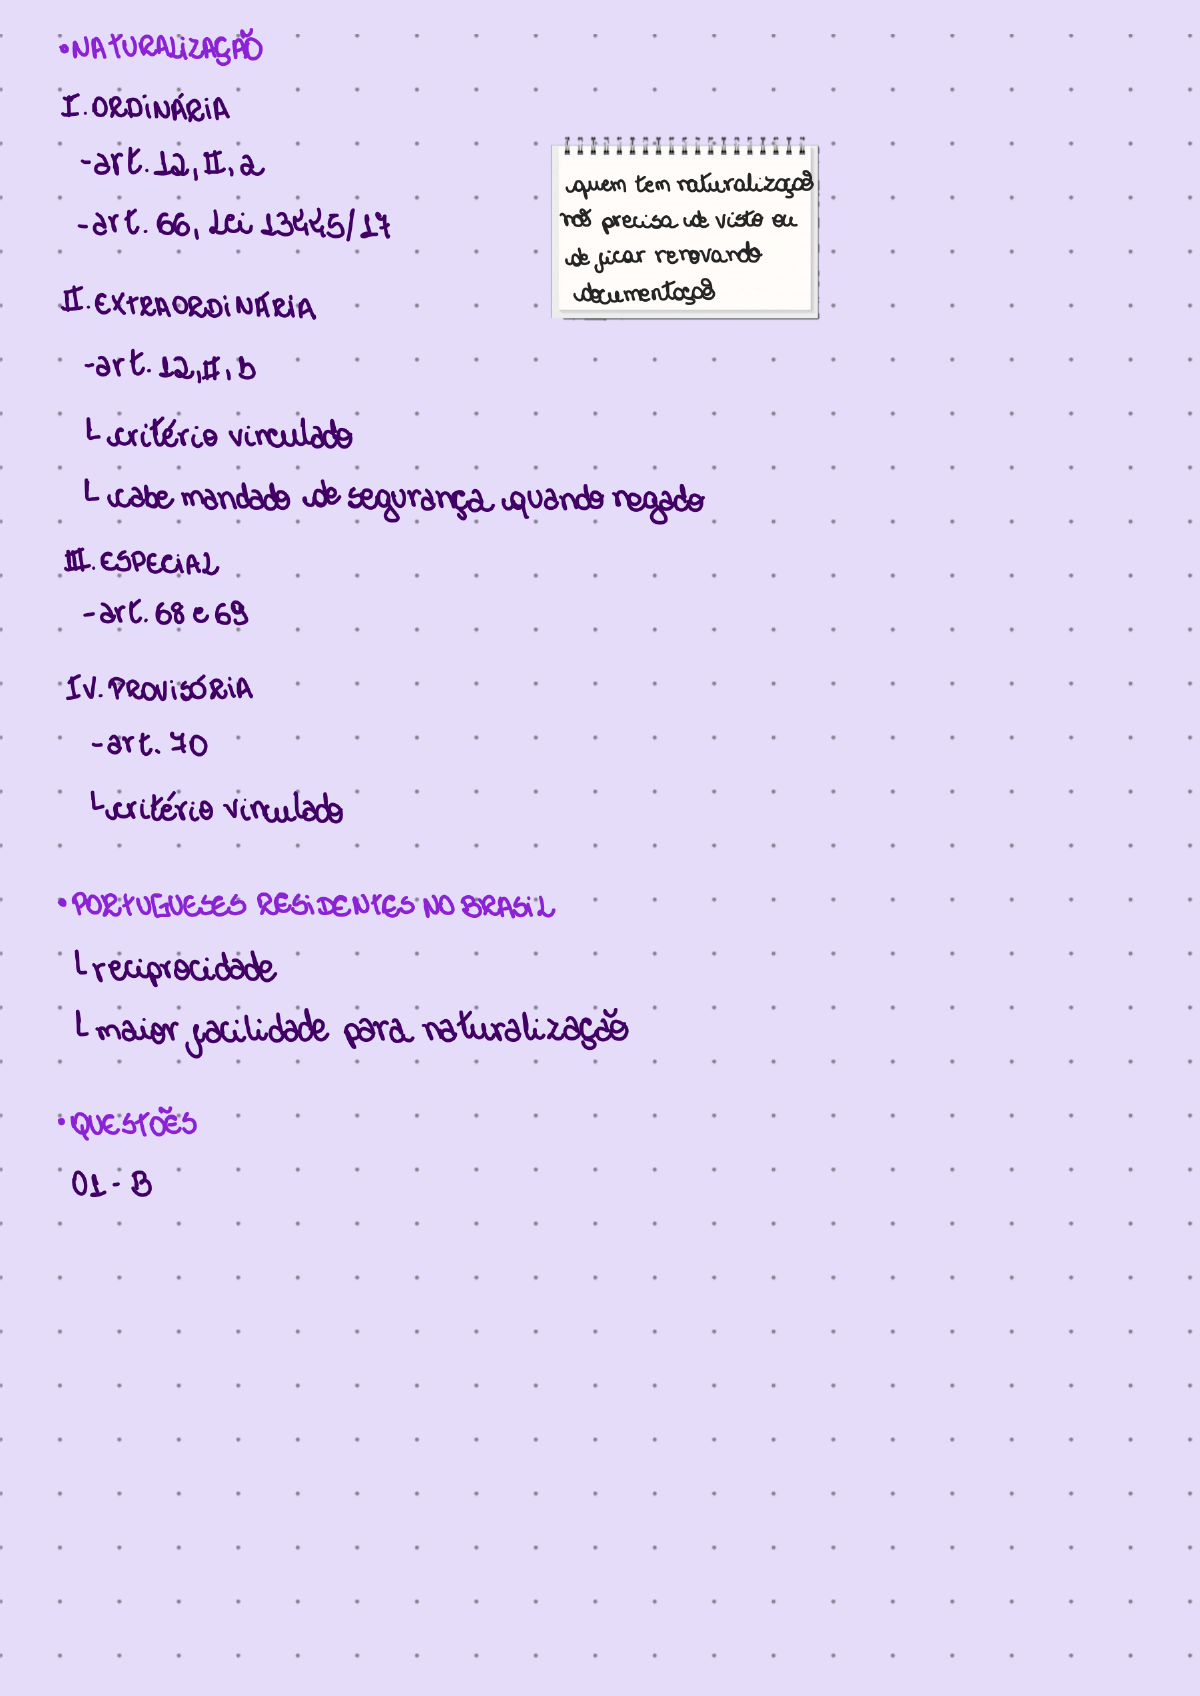 •NATURALIZAÇÃO
I. ORDINÁRIA
-art. 12, II, a
-art. 66, Lei 13445/17
quem tem naturalização
não precisa de visto ou
de ficar renovando
documentação
II. EXTRAORDINÁRIA
-art. 12, II, b
└ critério vinculado
└ cabe mandado de segurança quando negado
III. ESPECIAL
-art. 68 e 69
IV. PROVISÓRIA
-art. 70
└ critério vinculado
•PORTUGUESES RESIDENTES NO BRASIL
└ reciprocidade
└ maior facilidade para naturalização
•QUESTÕES
01 - B